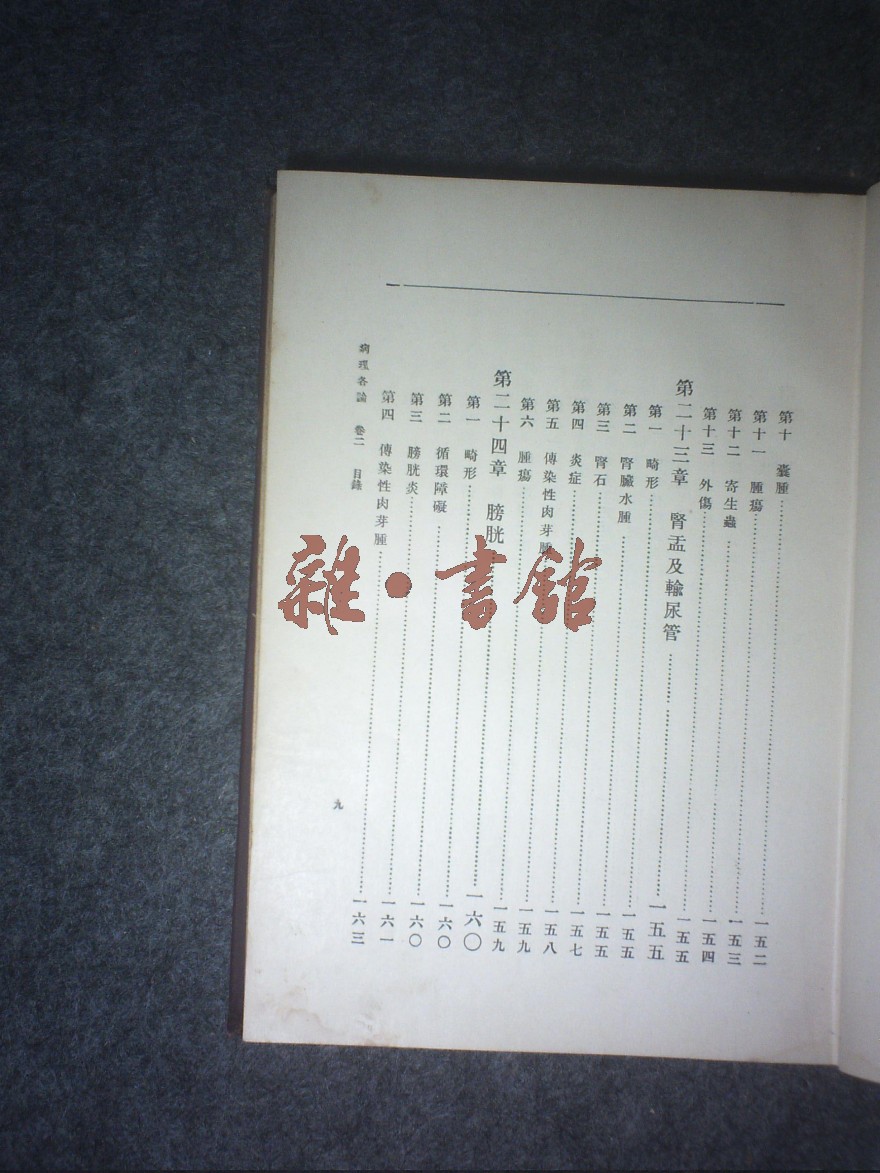 第十 囊腫……一五二
第十一 腫瘍……一五三
第十二 寄生蟲……一五四
第十三 外傷……一五五
第二十三章 腎盂及輸尿管……一五五
第一 畸形……一五五
第二 腎臟水腫……一五五
第三 腎石……一五七
第四 炎症……一五八
第五 傳染性肉芽腫……一五九
第六 腫瘍……一五九
第二十四章 膀胱……一六〇
第一 畸形……一六〇
第二 循環障礙……一六〇
第三 膀胱炎……一六一
第四 傳染性肉芽腫……一六三
病理各論 卷二 目錄
九
雜·書館